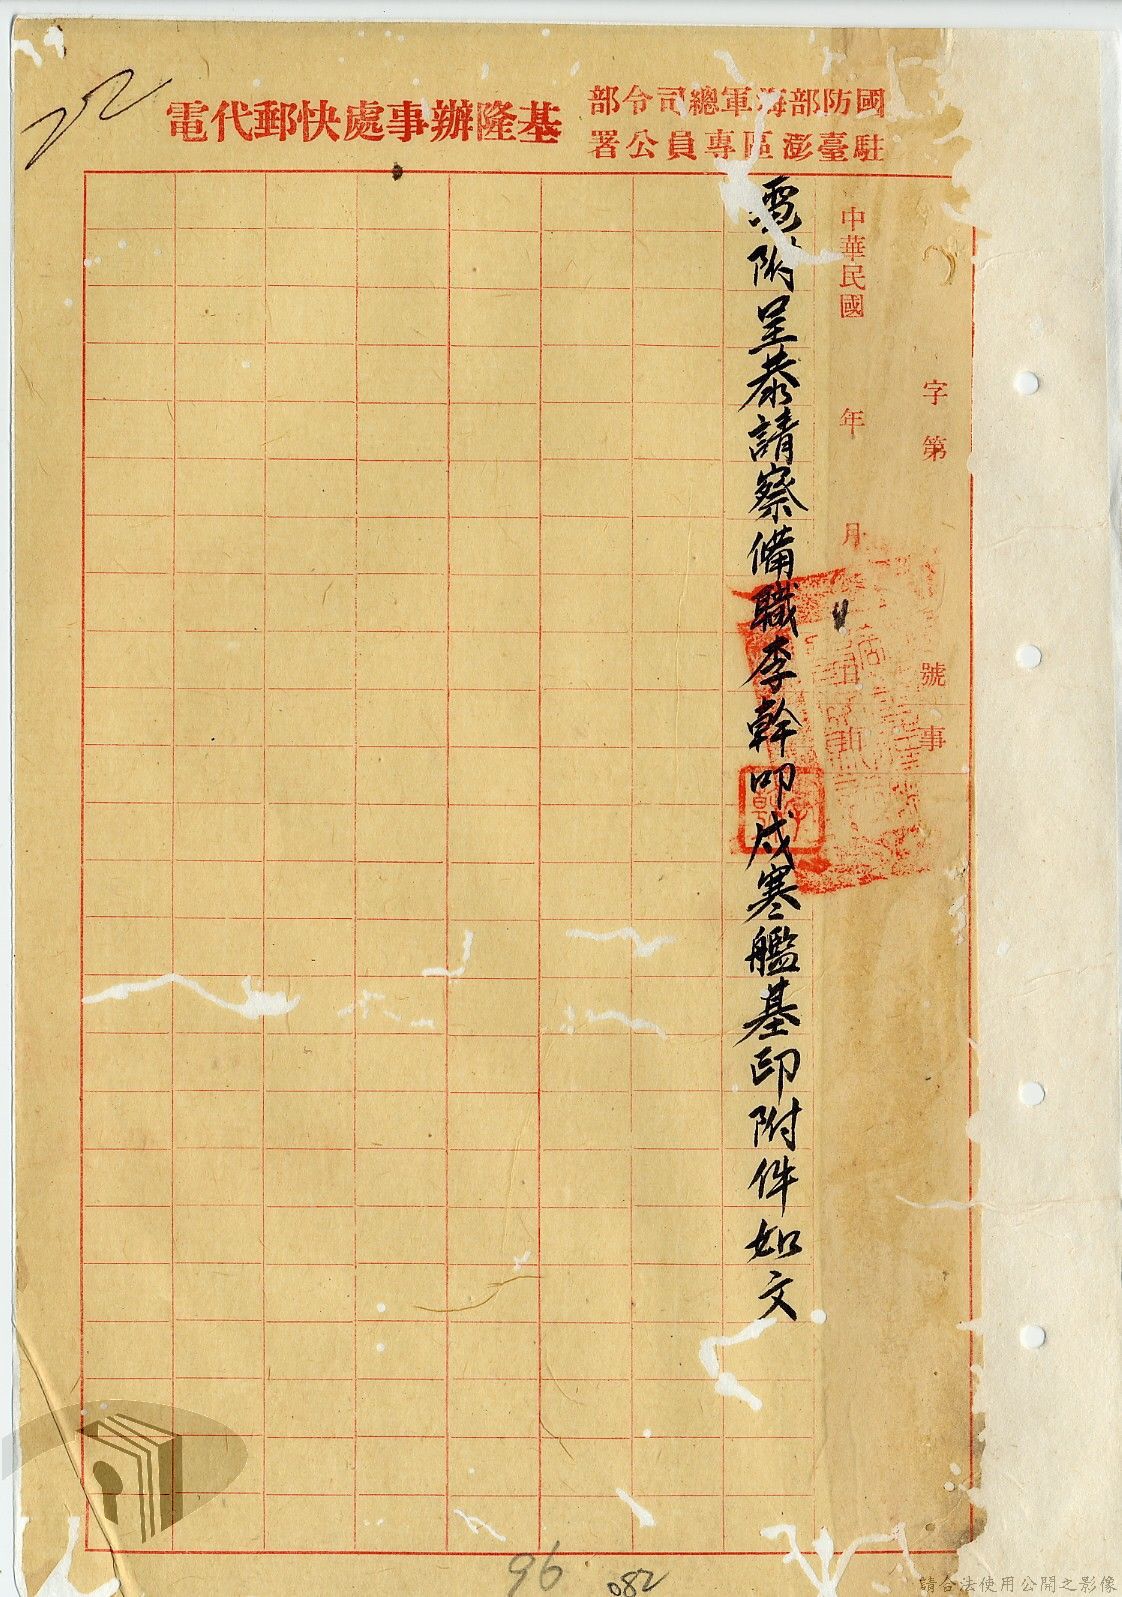 國防部海軍總司令部
駐臺澎區專員公署
基隆辦事處快郵代電
字第　號
事
中華民國　年　月　日
電附呈恭請察備職李幹叩戌寒艦基印附件如文
22
96
082
請合法使用公開之影像